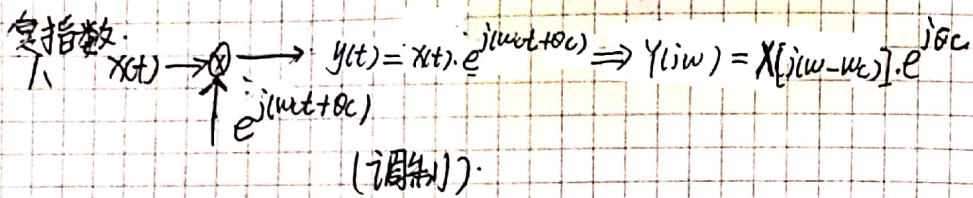 复指数.
x(t) → ⊗ → y(t) = x(t)·e^{j(ωct+θc)} ⇒ Y(jω) = X[j(ω-ωc)]·e^{jθc}
↑ e^{j(ωct+θc)}
(调制).